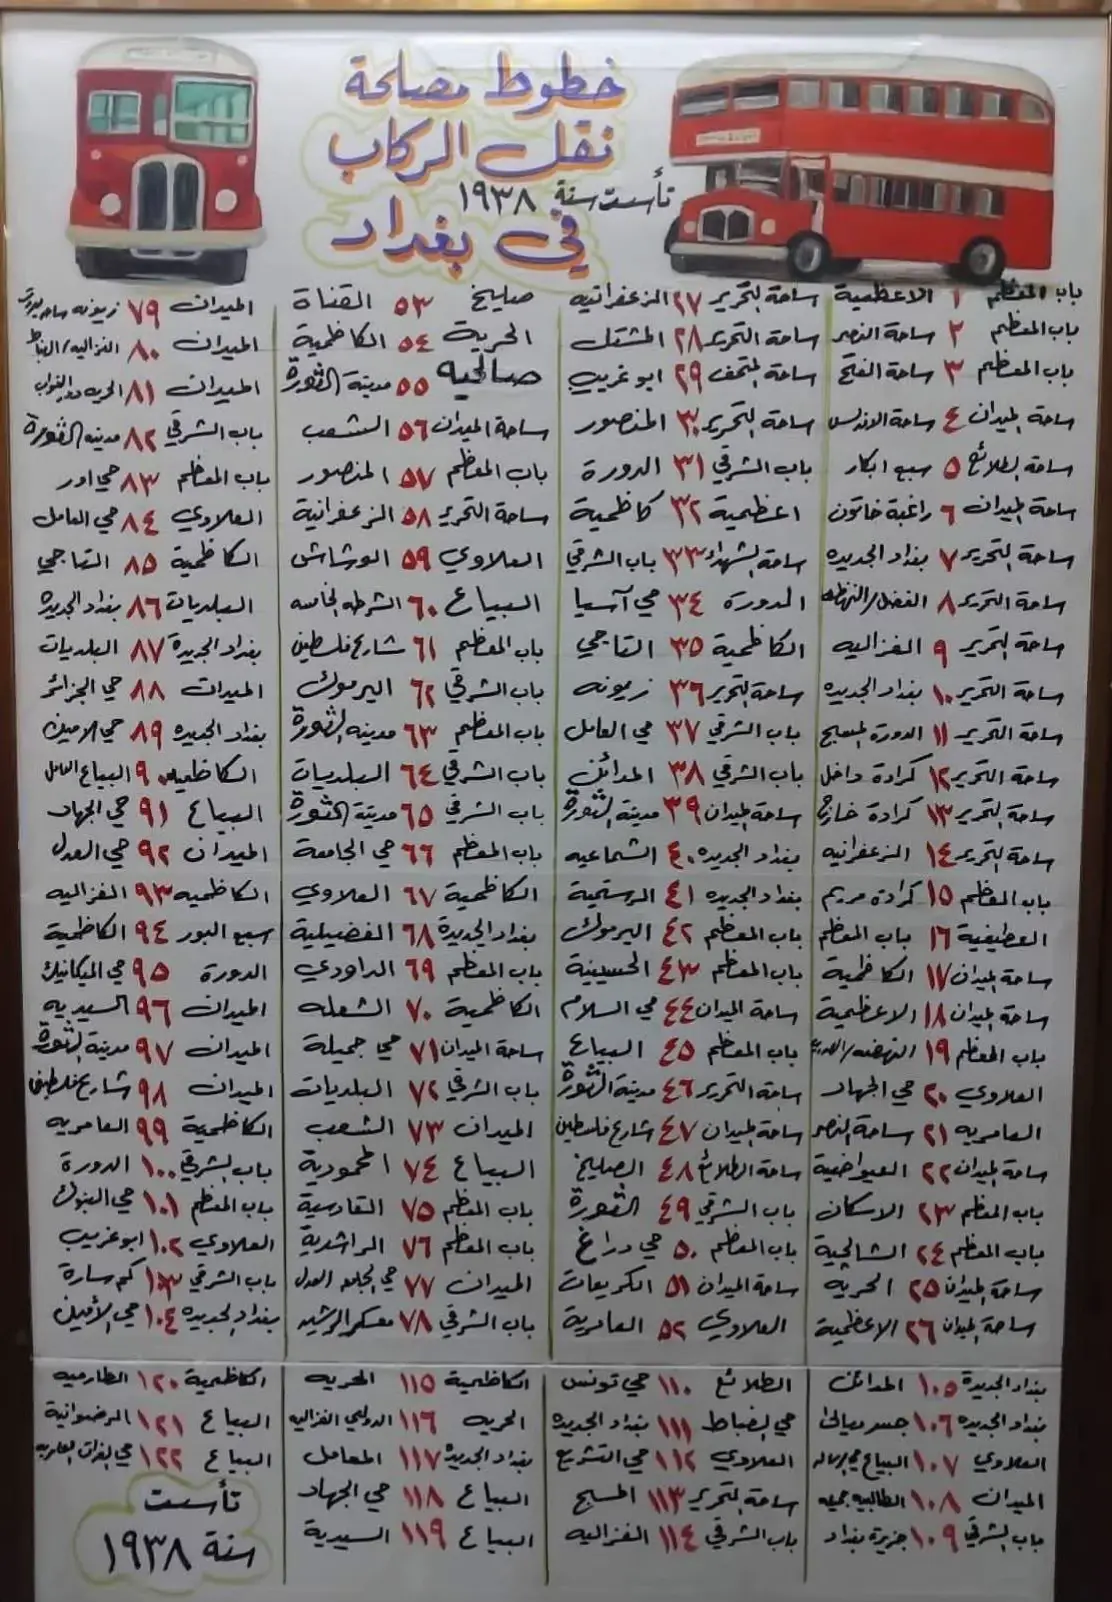 خطوط مصلحة
نقل الركاب
تأسست سنة ١٩٣٨
في بغداد
باب المعظم ١ الاعظمية
باب المعظم ٢ ساحة النصر
باب المعظم ٣ ساحة الفتح
ساحة الميدان ٤ ساحة الاندلس
ساحة الطلائع ٥ سبع ابكار
ساحة الميدان ٦ راغبة خاتون
ساحة التحرير ٧ بغداد الجديده
ساحة التحرير ٨ الفضل/النهضه
ساحة التحرير ٩ الغزاليه
ساحة التحرير ١٠ بغداد الجديده
ساحة التحرير ١١ الدورة المسبح
ساحة التحرير ١٢ كرادة داخل
ساحة التحرير ١٣ كرادة خارج
ساحة التحرير ١٤ الزعفرانيه
باب المعظم ١٥ كرادة مريم
العطيفية ١٦ باب المعظم
ساحة الميدان ١٧ الكاظمية
ساحة الميدان ١٨ الاعظمية
باب المعظم ١٩ النهضه/
العلاوي ٢٠ حي الجهاد
العامريه ٢١ ساحة النصر
ساحة الميدان ٢٢ العيواضية
باب المعظم ٢٣ الاسكان
باب المعظم ٢٤ الشالجية
ساحة الميدان ٢٥ الحريه
ساحة الميدان ٢٦ الاعظمية
ساحة التحرير ٢٧ الزعفرانيه
ساحة التحرير ٢٨ المشتل
ساحة المتحف ٢٩ ابو غريب
ساحة التحرير ٣٠ المنصور
باب الشرقي ٣١ الدورة
اعظمية ٣٢ كاظمية
ساحة الشهداء ٣٣ باب الشرقي
الدورة ٣٤ حي آسيا
الكاظمية ٣٥ التاجي
ساحة التحرير ٣٦ زيونه
باب الشرقي ٣٧ حي العامل
باب الشرقي ٣٨ المدائن
ساحة الميدان ٣٩ مدينة الثورة
بغداد الجديده ٤٠ الشماعيه
بغداد الجديده ٤١ الرستمية
باب المعظم ٤٢ اليرموك
باب المعظم ٤٣ الحسينية
ساحة الميدان ٤٤ حي السلام
باب المعظم ٤٥ البياع
ساحة التحرير ٤٦ مدينة الثورة
ساحة الميدان ٤٧ شارع فلسطين
ساحة الطلائع ٤٨ الصليخ
باب الشرقي ٤٩ الثورة
باب المعظم ٥٠ حي دراغ
ساحة الميدان ٥١ الكريعات
العلاوي ٥٢ العامرية
صليخ ٥٣ القناة
الحرية ٥٤ الكاظمية
صالحيه ٥٥ مدينة الثورة
ساحة الميدان ٥٦ الشعب
باب المعظم ٥٧ المنصور
ساحة التحرير ٥٨ الزعفرانية
العلاوي ٥٩ الوشاش
البياع ٦٠ الشرطه الخامسه
باب المعظم ٦١ شارع فلسطين
باب الشرقي ٦٢ اليرموك
باب المعظم ٦٣ مدينة الثورة
باب الشرقي ٦٤ البلديات
باب الشرقي ٦٥ مدينة الثورة
باب المعظم ٦٦ حي الجامعة
الكاظمية ٦٧ العلاوي
بغداد الجديدة ٦٨ الفضيلية
باب المعظم ٦٩ الداودي
الكاظمية ٧٠ الشعله
ساحة الميدان ٧١ حي جميلة
باب الشرقي ٧٢ البلديات
الميدان ٧٣ الشعب
البياع ٧٤ المحمودية
باب المعظم ٧٥ القادسية
باب المعظم ٧٦ الراشدية
الميدان ٧٧ حي العدل
باب الشرقي ٧٨ معسكر الرشيد
الميدان ٧٩ زيونه ساحه
الميدان ٨٠ الغزاليه/
الميدان ٨١ الحريه دور النواب
باب الشرقي ٨٢ مدينه الثورة
باب المعظم ٨٣ حي اور
العلاوي ٨٤ حي العامل
الكاظمية ٨٥ التاجي
البلديات ٨٦ بغداد الجديدة
بغداد الجديدة ٨٧ البلديات
الميدان ٨٨ حي الجزائر
بغداد الجديده ٨٩ حي الامين
الكاظميه ٩٠ البياع العامل
البياع ٩١ حي الجهاد
الميدان ٩٢ حي العدل
الكاظميه ٩٣ الغزاليه
سبع البور ٩٤ الكاظمية
الدورة ٩٥ حي الميكانيك
الميدان ٩٦ السيديه
الميدان ٩٧ مدينة الثورة
الميدان ٩٨ شارع فلسطين
الكاظمية ٩٩ العامريه
باب الشرقي ١٠٠ الدورة
باب المعظم ١٠١ حي البنوك
العلاوي ١٠٢ ابو غريب
باب الشرقي ١٠٣ كم سارة
بغداد الجديده ١٠٤ حي الأمين
بغداد الجديدة ١٠٥ المدائن
بغداد الجديده ١٠٦ جسر ديالى
العلاوي ١٠٧ البياع حي الرساله
الميدان ١٠٨ الطالبيه جميله
باب الشرقي ١٠٩ جزيرة بغداد
الطلائع ١١٠ حي تونس
حي الضباط ١١١ بغداد الجديده
العلاوي ١١٢ حي التشريع
ساحة التحرير ١١٣ المسبح
باب الشرقي ١١٤ الغزاليه
الكاظمية ١١٥ الحريه
الحريه ١١٦ الدولعي الغزاليه
بغداد الجديده ١١٧ المعامل
البياع ١١٨ حي الجهاد
البياع ١١٩ السيدية
الكاظمية ١٢٠ الطارميه
البياع ١٢١ الرضوانية
البياع ١٢٢ حي الفرات العامريه
تأسست
سنة ١٩٣٨